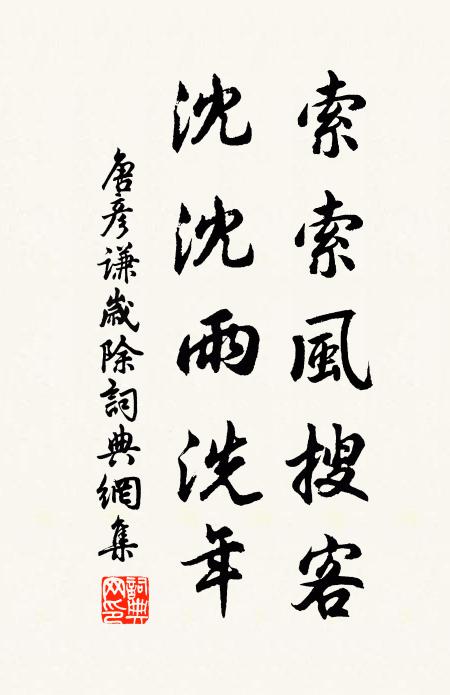 索索風搜客
沈沈雨洗年
唐彥謙歲除詞典網集
詞典
网印